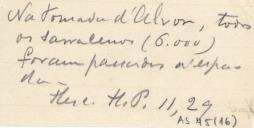 Na tomada d'Alvor, todos
os sarracenos (6.000)
foram passados à espa-
da —
Herc. H.P. II, 29
AS A5 (16)